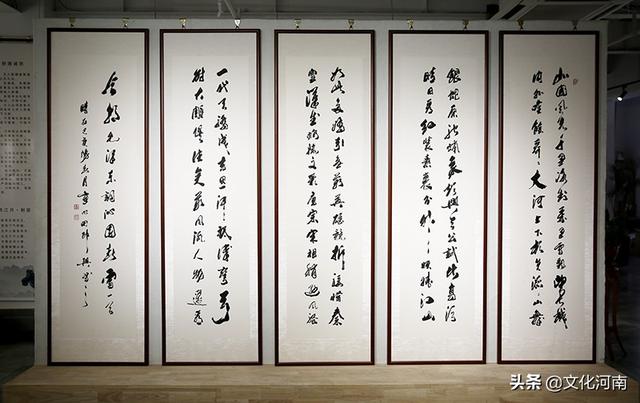 北国风光千里冰封万里雪飘望长城
内外唯余莽莽大河上下顿失滔滔山舞
银蛇原驰蜡象欲与天公试比高须
晴日看红装素裹分外妖娆江山
如此多娇引无数英雄竞折腰惜秦
皇汉武略输文采唐宗宋祖稍逊风骚
一代天骄成吉思汗只识弯弓
射大雕俱往矣数风流人物还看
今朝毛泽东词沁园春雪一首
头条 @文化河南